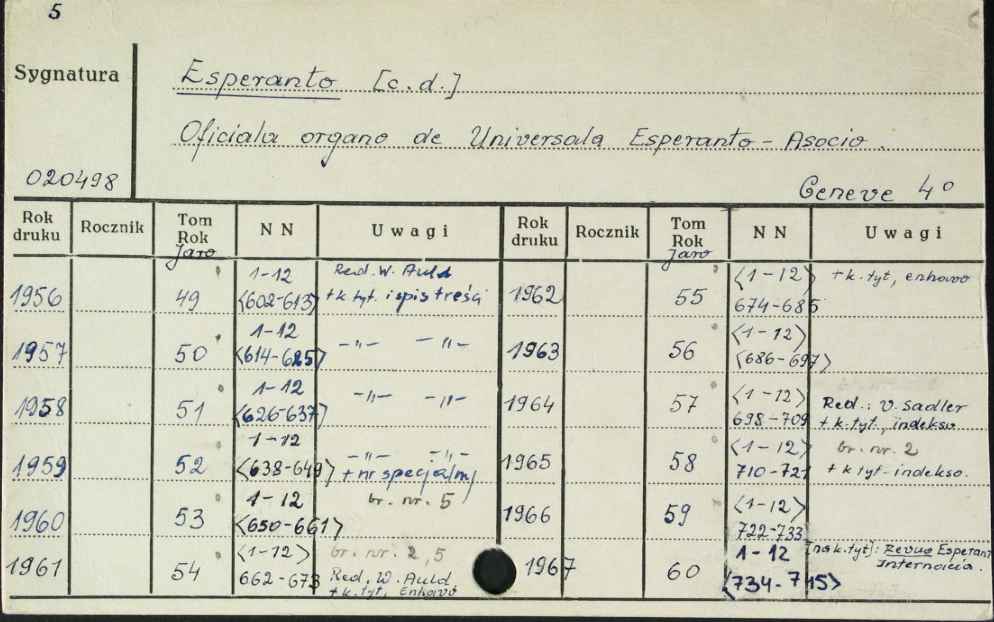 5
Sygnatura
Esperanto [c.d.]
Oficiala organo de Universala Esperanto-Asocio.
020498
Geneve 4°
Rok druku Rocznik Tom Rok Jaro NN Uwagi Rok druku Rocznik Tom Rok Jaro NN Uwagi
1956 49 1-12 <602-613> Red. W. Auld + k. tyt. i spis treści 1962 55 <1-12> 674-685 + k. tyt, enhavo
1957 50 1-12 <614-625> -"- -"- 1963 56 <1-12> <686-697>
1958 51 1-12 <626-637> -"- -"- 1964 57 <1-12> 698-709 Red.: V. Sadler + k. tyt., indekso
1959 52 1-12 <638-649> -"- -"- + nr specjalny 1965 58 <1-12> 710-721 br. nr. 2 + k tyt - indekso.
1960 53 1-12 <650-661> br. nr. 5 1966 59 <1-12> 722-733
1961 54 <1-12> 662-673 br. nr. 2,5 Red. W. Auld + k. tyt, Enhavo 1967 60 1-12 <734-715> [na k. tyt]: Revuo Esperan Internacia.